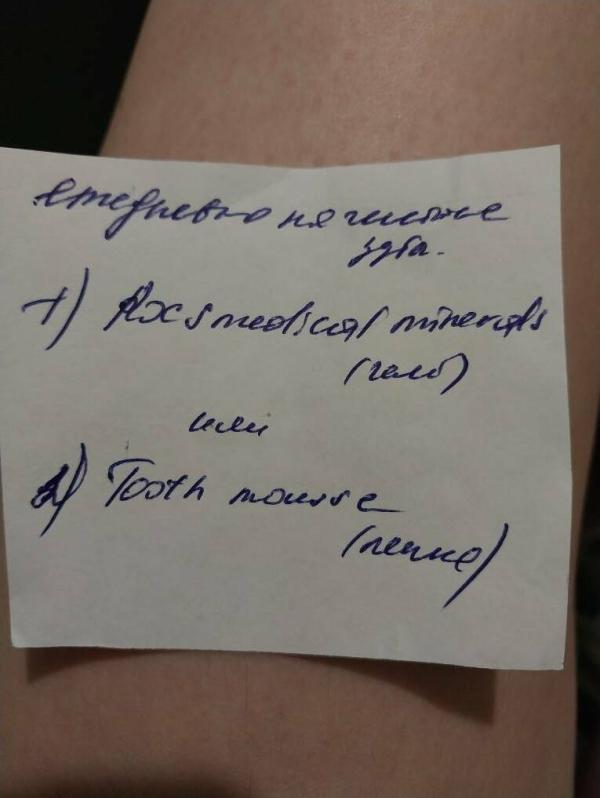 ежедневно на чистые
зубы.
1) Rocs medical minerals
(гель)
или
2) Tooth mousse
(пенка)